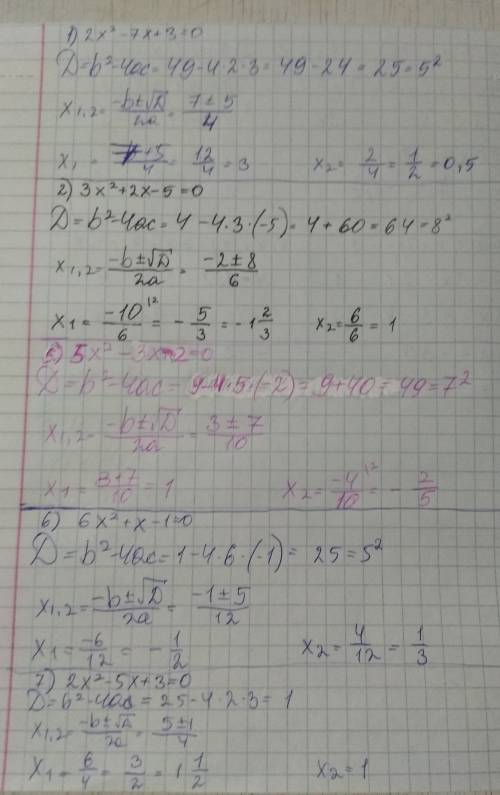 1) 2x² - 7x + 3 = 0
D = b² - 4ac = 49 - 4·2·3 = 49 - 24 = 25 = 5²
x₁,₂ = (-b ± √D)/2a = (7 ± 5)/4
x₁ = (7 + 5)/4 = 12/4 = 3    x₂ = 2/4 = 1/2 = 0,5
2) 3x² + 2x - 5 = 0
D = b² - 4ac = 4 - 4·3·(-5) = 4 + 60 = 64 = 8²
x₁,₂ = (-b ± √D)/2a = (-2 ± 8)/6
x₁ = -10/6 |² = -5/3 = -1 2/3    x₂ = 6/6 = 1
5x² - 3x - 2 = 0
D = b² - 4ac = 9 - 4·5·(-2) = 9 + 40 = 49 = 7²
x₁,₂ = (-b ± √D)/2a = (3 ± 7)/10
x₁ = (3 + 7)/10 = 1    x₂ = -4/10 |² = -2/5
6) 6x² + x - 1 = 0
D = b² - 4ac = 1 - 4·6·(-1) = 25 = 5²
x₁,₂ = (-b ± √D)/2a = (-1 ± 5)/12
x₁ = -6/12 = -1/2    x₂ = 4/12 = 1/3
7) 2x² - 5x + 3 = 0
D = b² - 4ac = 25 - 4·2·3 = 1
x₁,₂ = (-b ± √D)/2a = (5 ± 1)/4
x₁ = 6/4 = 3/2 = 1 1/2    x₂ = 1